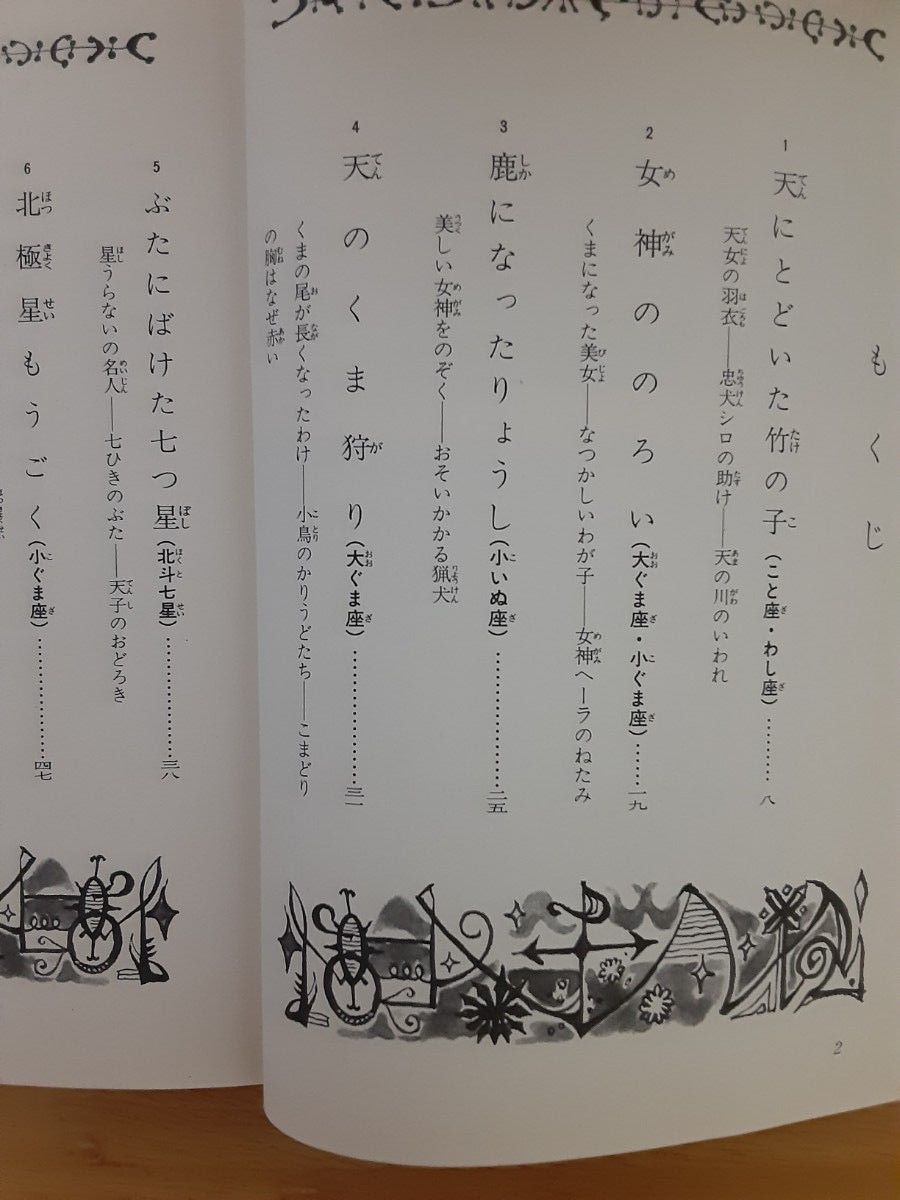 もくじ
1
天にとどいた竹の子（こと座・わし座）…………八
天女の羽衣――忠犬シロの助け――天の川のいわれ
2
女神ののろい（大ぐま座・小ぐま座）……一九
くまになった美女――なつかしいわが子――女神ヘーラのねたみ
3
鹿になったりょうし（小いぬ座）………………二五
美しい女神をのぞく――おそいかかる猟犬
4
天のくま狩り（大ぐま座）………………三一
くまの尾が長くなったわけ――小鳥のかりうどたち――こまどり
の胸はなぜ赤い
5
ぶたにばけた七つ星（北斗七星）……………三八
星うらないの名人――七ひきのぶた――天子のおどろき
6
北極星もうごく（小ぐま座）………………四七
2